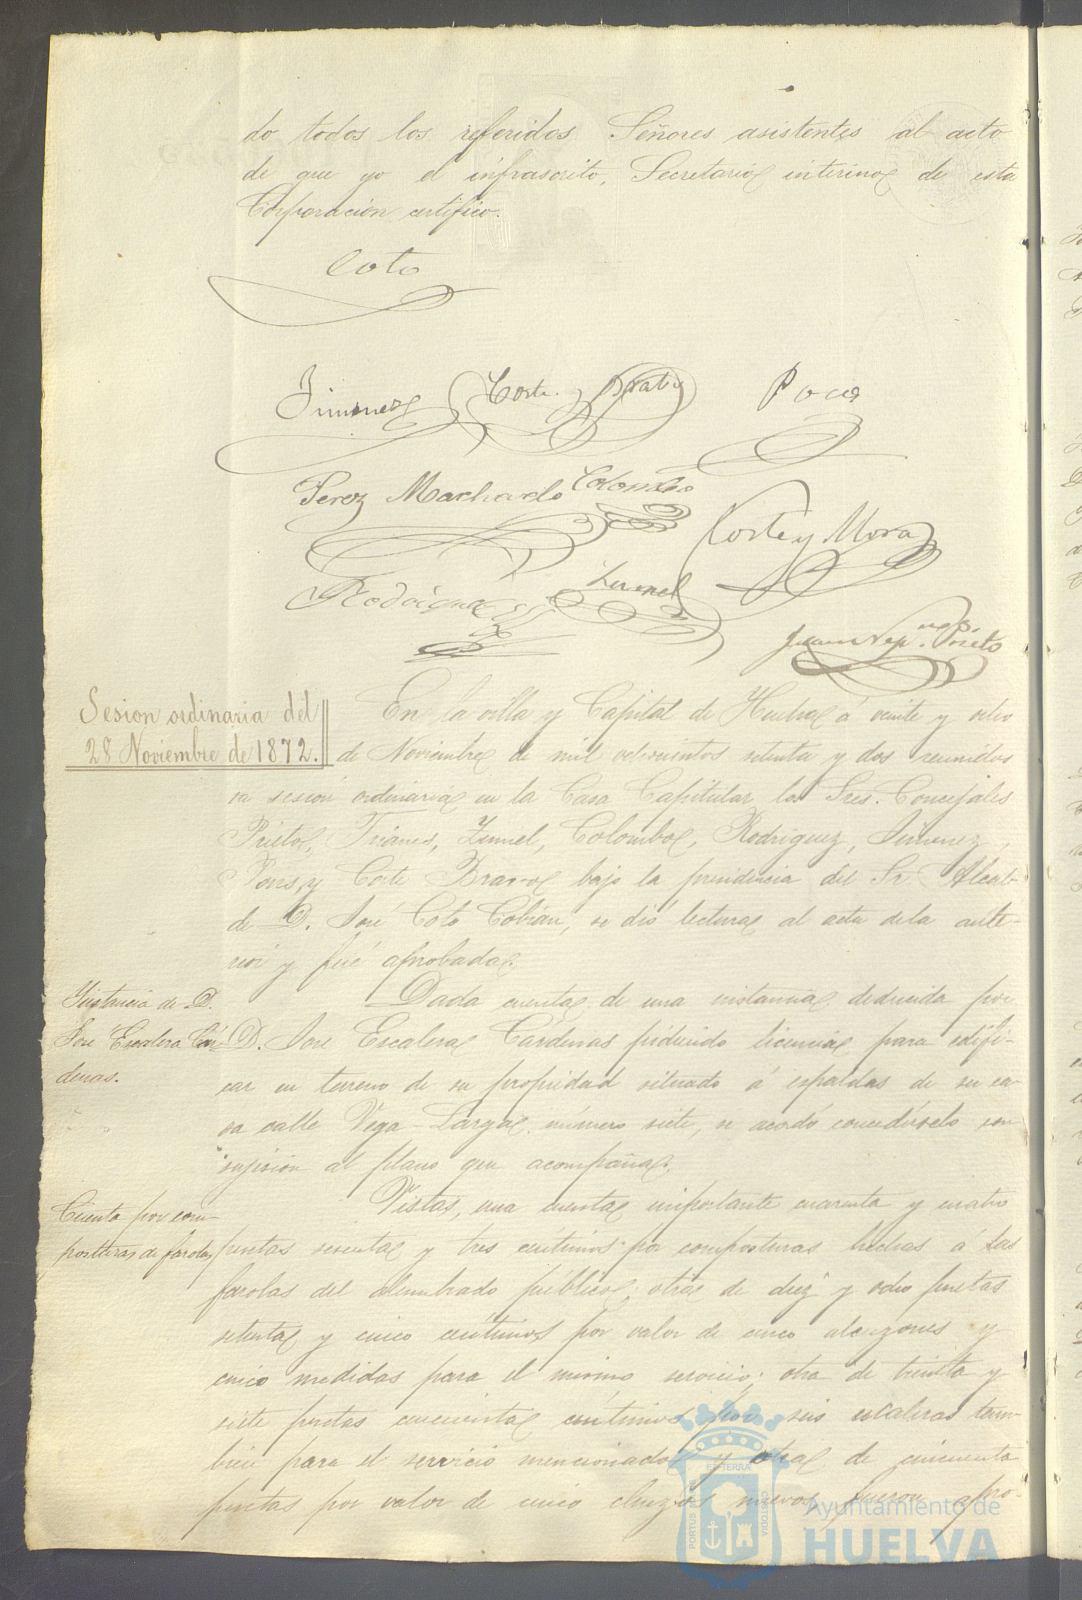 do todos los referidos Señores asistentes al acto
de que yo el infrascrito, Secretario interino de esta
Corporación certifico.
Coto
Jimenez
Corte y Bravo
Pons
Perez Machado
Colombo
Corte y Mora
Rodriguez
Zunel
Juan Nep.no P. Prieto
Sesion ordinaria del
28 Noviembre de 1872.
En la villa y Capital de Huelva á veinte y ocho
de Noviembre de mil ochocientos setenta y dos reunidos
en sesion ordinaria en la Casa Capitular los Sres. Concejales
Prieto, Trianes, Zunel, Colombo, Rodriguez, Jimenez,
Pons, y Corte Bravo bajo la presidencia del Sr Alcal-
de D. José Coto Cobian, se dió lectura al acta de la ante-
rior y fué aprobada.
Instancia de D.
José Escalera Cár-
denas.
Dada cuenta de una instancia deducida por
D. José Escalera Cárdenas pidiendo licencia para edifi-
car en terreno de su propiedad situado á espaldas de su ca-
sa calle Vega-Larga, número siete, se acordó concedérselo con
sujecion al plano que acompaña.
Cuenta por com-
posturas de farolas
Vistas, una cuenta importante cuarenta y cuatro
pesetas sesenta y tres centimos por composturas hechas á las
farolas del alumbrado público; otra de diez y ocho pesetas
setenta y cinco centimos por valor de cinco alcuzones y
cinco medidas para el mismo servicio; otra de treinta y
siete pesetas cincuenta centimos por seis escaleras tam-
bien para el servicio mencionado y otra de cincuenta
pesetas por valor de cinco chuzos nuevos, fueron apro-
PORTUS MARIS
ET TERRA
CUSTODIA
Ayuntamiento de
HUELVA